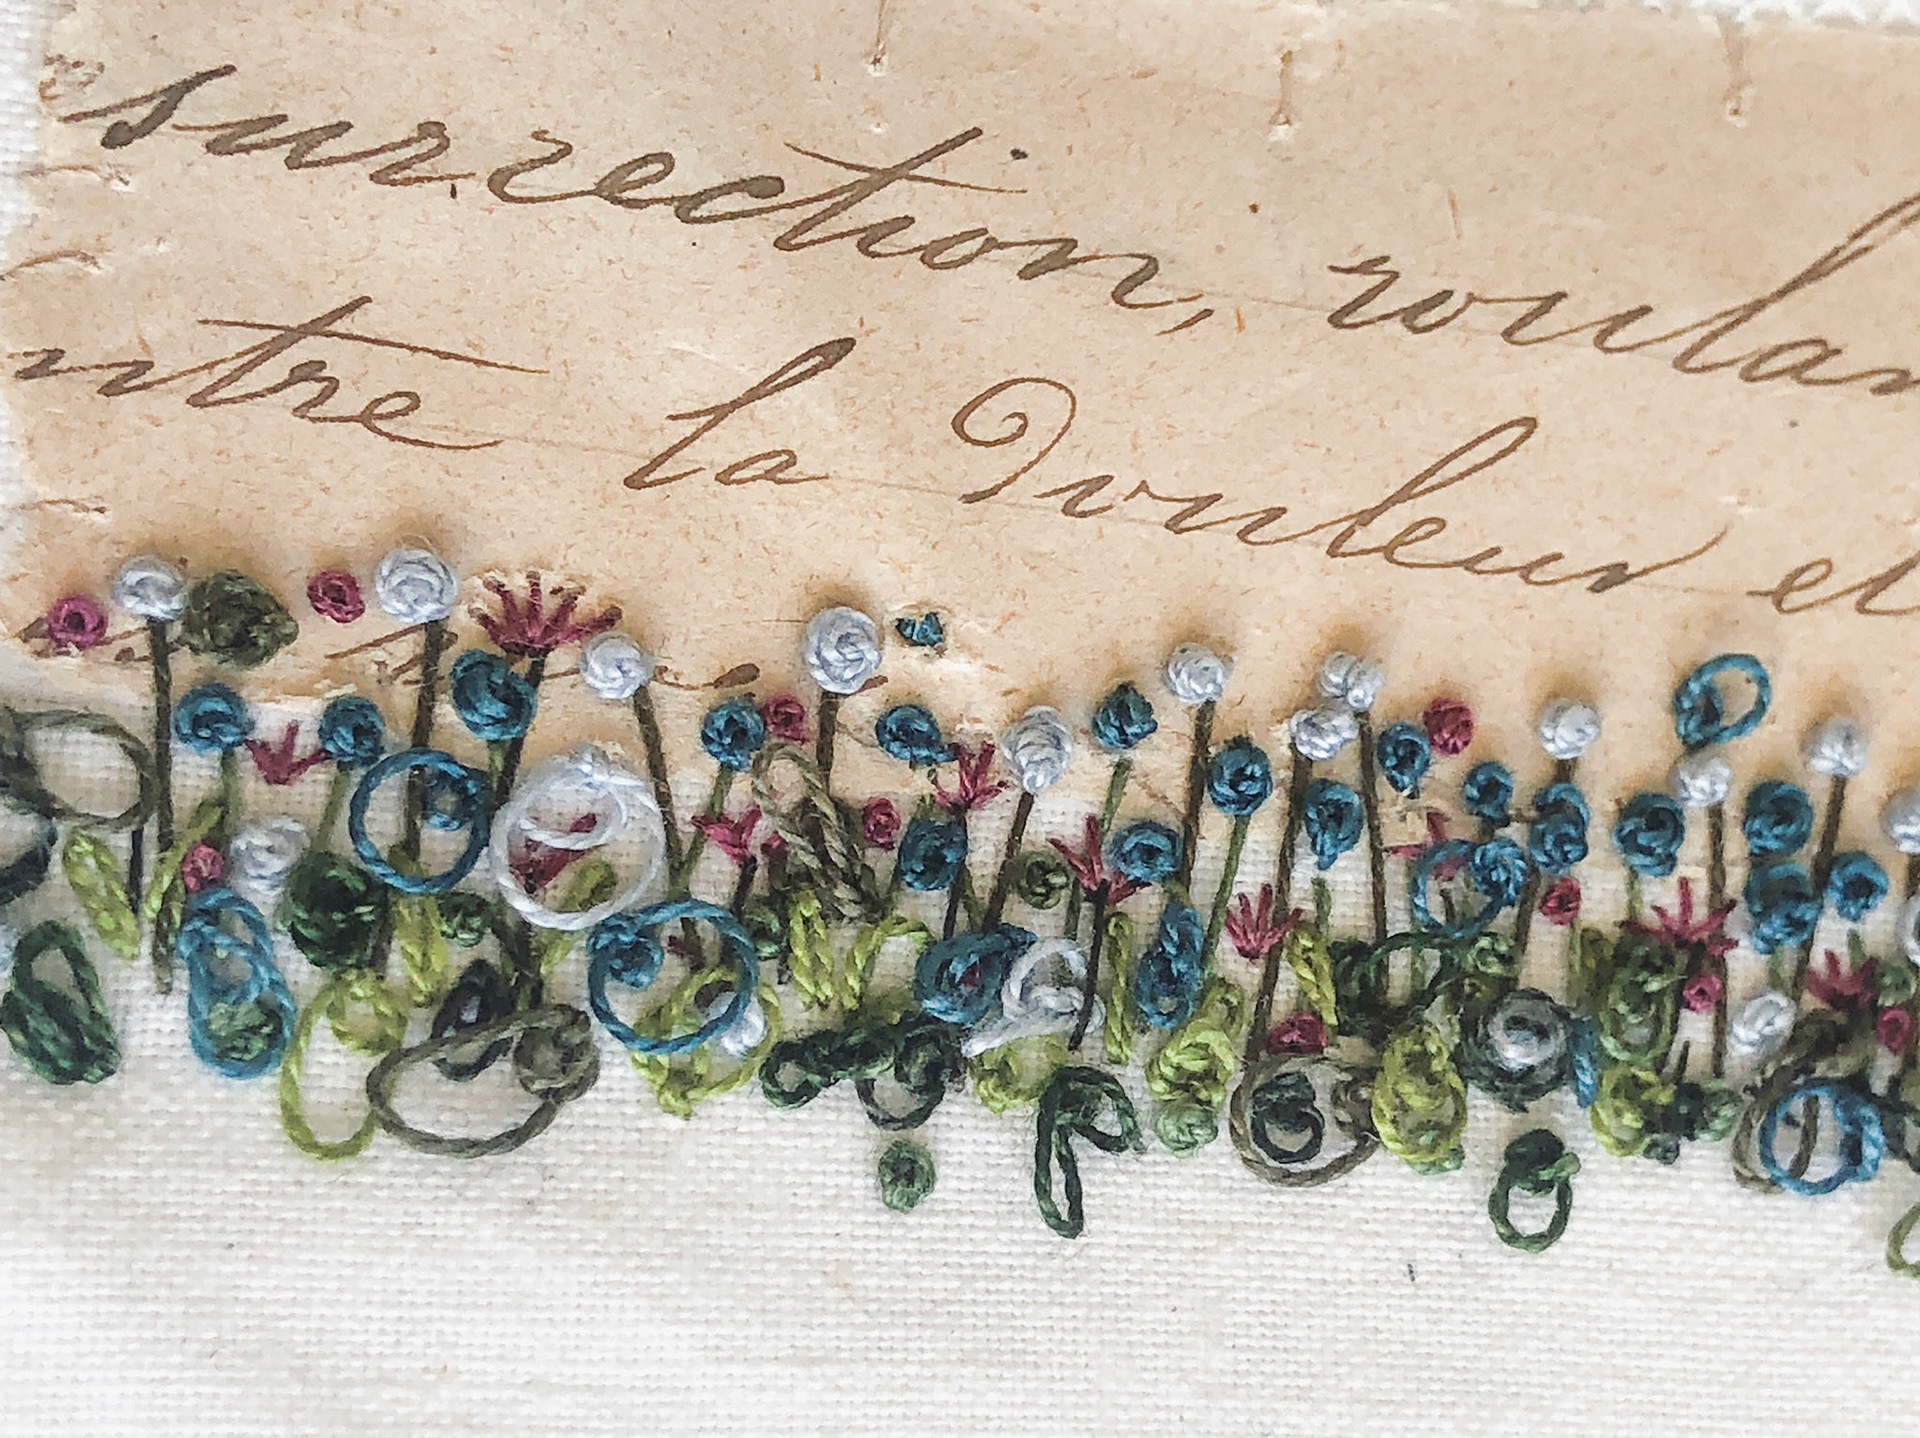 esurrection, roulan
ntre la Douleur et